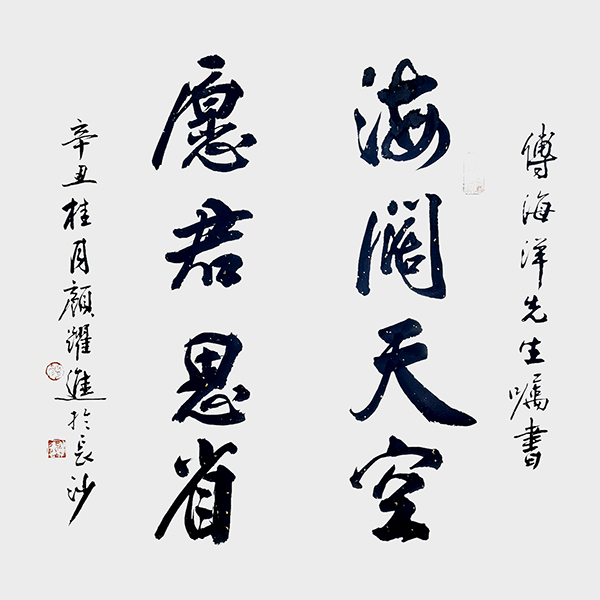 傅海洋先生嘱書
海阔天空
愿君思省
辛丑桂月顔耀進於長沙